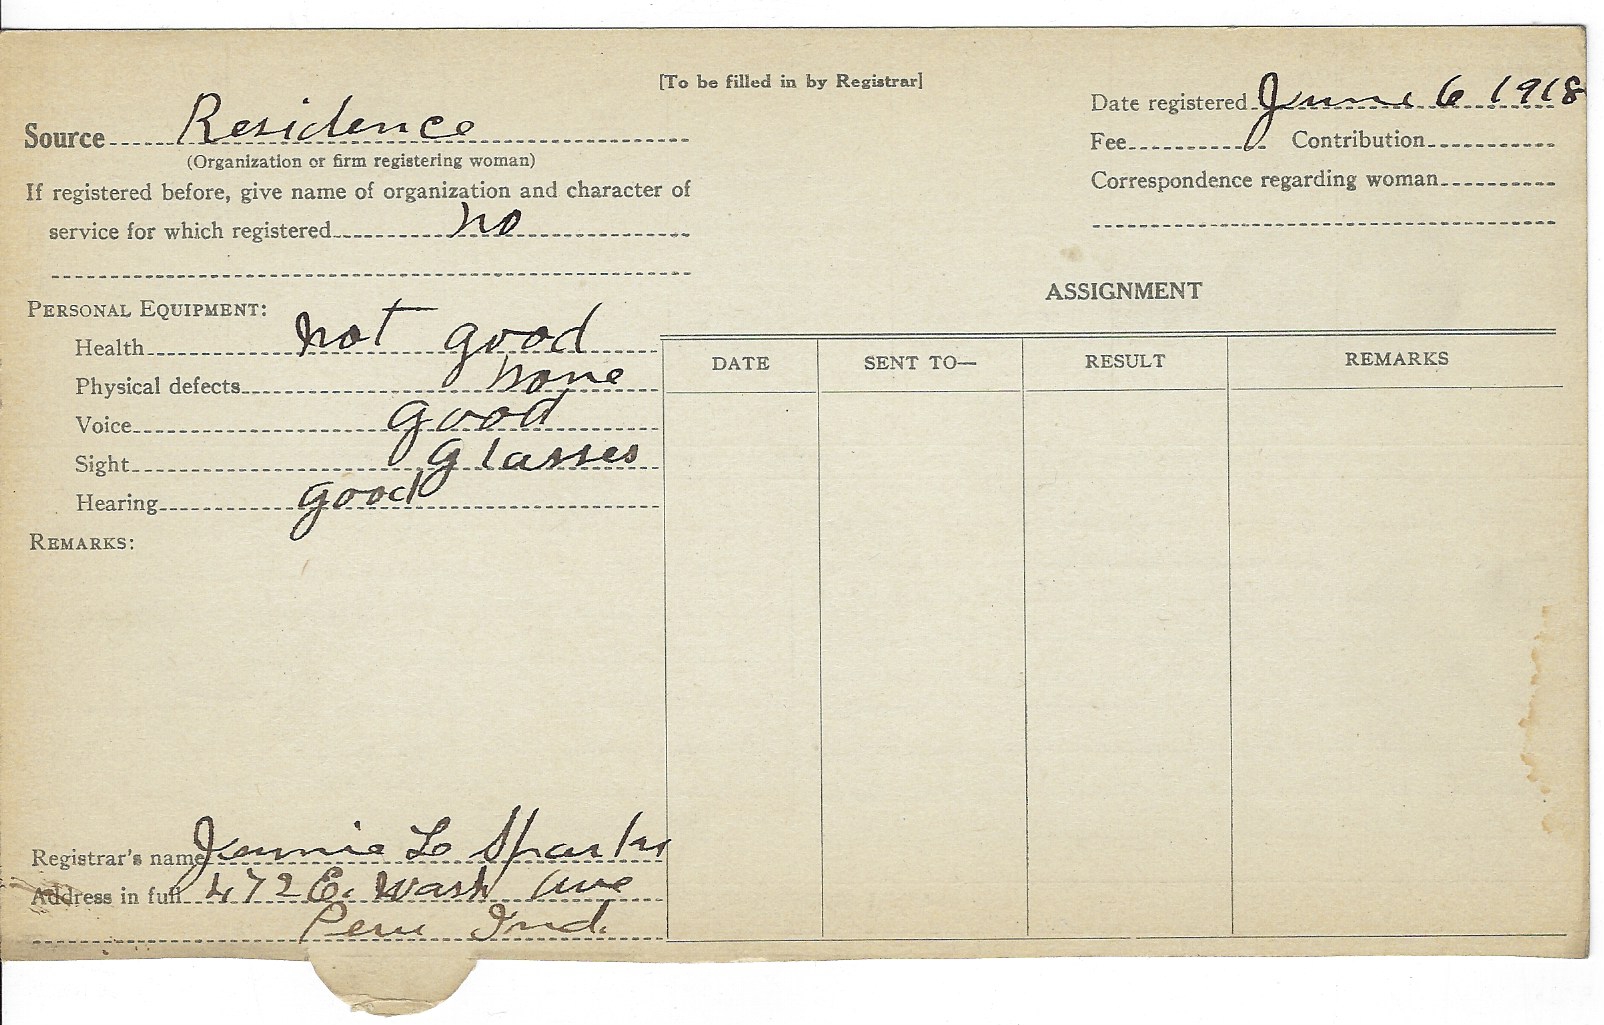 [To be filled in by Registrar]
Source Residence
(Organization or firm registering woman)
If registered before, give name of organization and character of
service for which registered no
Date registered June 6 1918
Fee Contribution
Correspondence regarding woman
PERSONAL EQUIPMENT:
Health not good
Physical defects none
Voice good
Sight glasses
Hearing good
REMARKS:
ASSIGNMENT
DATE SENT TO— RESULT REMARKS
Registrar's name Jennie L Sparks
Address in full 472 E. Wash Ave
Peru Ind.